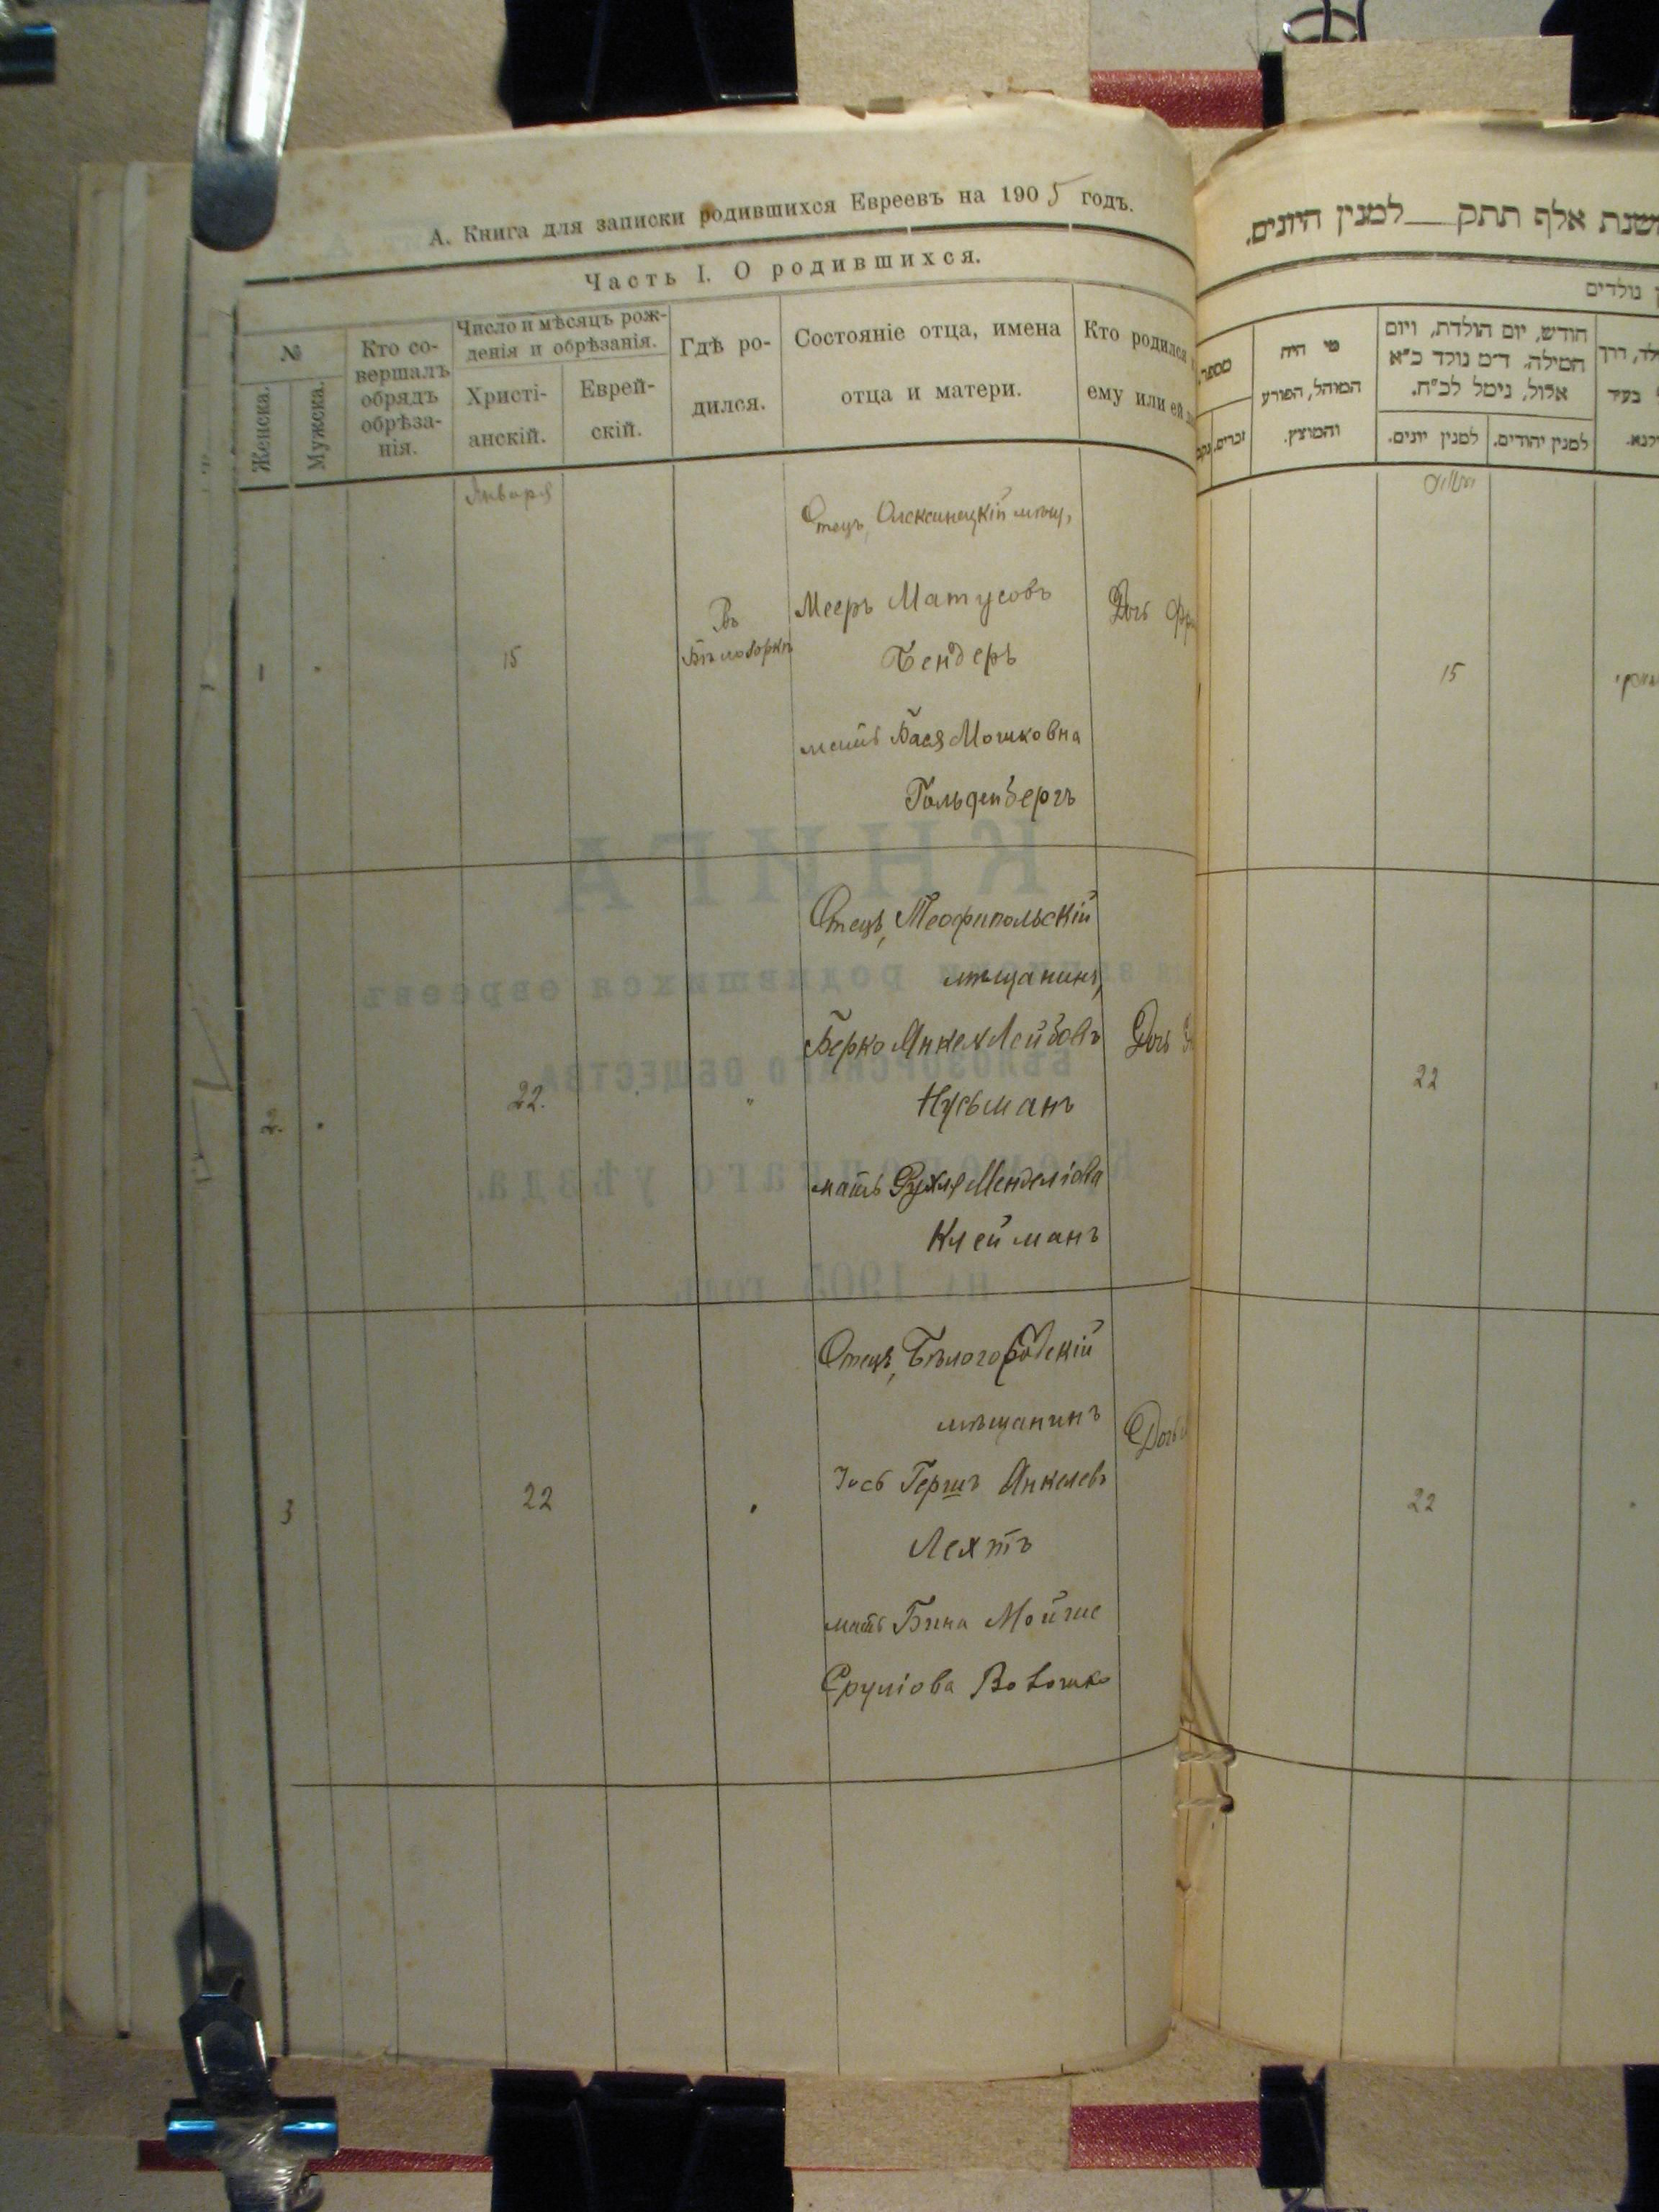 А. Книга для записки родившихся Евреевъ на 1905 годъ.
Часть I. О родившихся.
№
Женска.
Мужска.
Кто со-
вершалъ
обрядъ
обрѣза-
нія.
Число и мѣсяцъ рож-
денія и обрѣзанія.
Христі-
анскій.
Еврей-
скій.
Гдѣ ро-
дился.
Состояніе отца, имена
отца и матери.
Кто родился
ему или ей
Января
1
15
Въ
Бѣлозоркѣ
Отецъ, Олексинецкій мѣщ,
Мееръ Матусовъ
Бендеръ
мать Бася Мошковна
Гольденбергъ
Дочь
2.
22.
Отецъ, Теофипольскій
мѣщанинъ,
Берко Янкел Лейбовъ
Нусьманъ
мать Рухля Менделіова
Клейманъ
Дочь
3
22
Отецъ, Бѣлогородскій
мѣщанинъ
Іось Гершъ Янкелевъ
Лехтъ
мать Бина Мойше
Сруліова
Дочь
שנת אלף תתק למנין היונים.
נולדים
מספר
זכרים.
מי היה
המוהל, הפורע
והמוצץ.
חודש, יום הולדת, ויום
המילה. ד״מ נולד כ״א
אלול, נימל לכ״ח.
למנין יונים.
למנין יהודים.
15
22
22